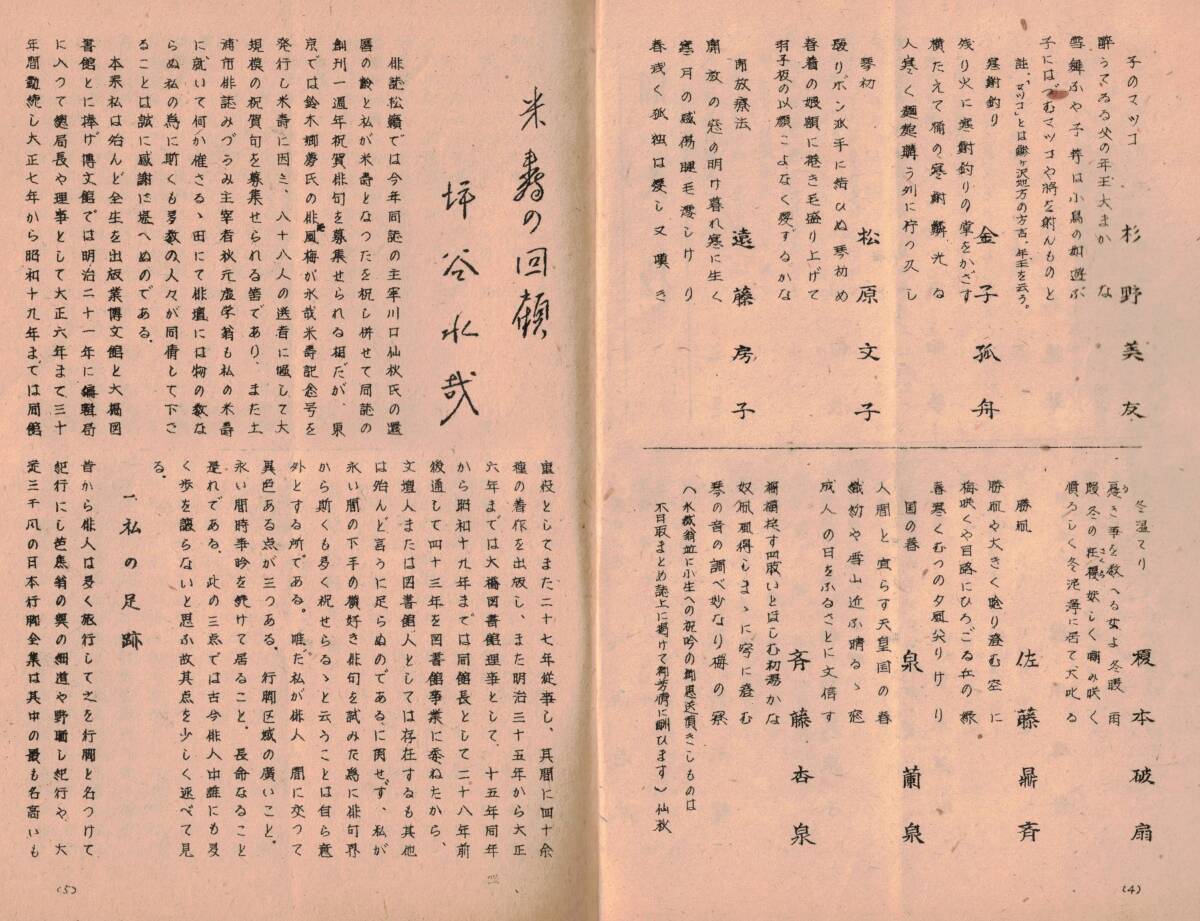 子のマツゴ
杉野美友
酔うてゐる父の年玉大まかな
雪舞ふや子等は小鳥の如遊ぶ
子にはづむマツゴや将を射んものと
註、「マツゴ」とは鰺ヶ沢地方の方言、年玉を云う。
寒鮒釣り
金子孤舟
残り火に寒鮒釣りの掌をかざす
横たえて桶の寒鮒鱗光る
人寒く麺麭購う列に佇つ久し
琴初
松原文子
破りボン水手に結ひぬ琴初め
春着の娘額に捲き毛盛り上げて
羽子板の以顔こよなく愛するかな
開放療法
遠藤房子
開放の窓の明け暮れ寒に生く
寒月の感傷腿毛濃しけり
春浅く孤独は愛し又嘆き
冬温てり
榎本破扇
悪き事を数へる女よ冬暖雨
暖冬の狂櫻妖しく噛み咲く
慣ろしく冬泥濘に居て犬叱る
勝凧
佐藤鼎斉
勝凧や大きく唸り澄む空に
梅咲くや目路にひろごる在の緑
春寒くむつの夕風尖りけり
国の春
泉蘭泉
人間と宣らす天皇国の春
織初や雪山近ふ晴るゝ窓
成人の日をふるさとに文倍す
斉藤杏泉
奴凧風得しまゝに寧に澄む
琴の音の調べ妙なり梅の累
(水哉翁並に小生への祝吟の御恵送頂きこしものは
不日取まとめ誌上に掲げて御芳情に酬ひます)仙秋
(4)
米壽の回顧
坪谷水哉
俳誌松籟では今年同誌の主宰川口仙秋氏の還
暦の齢と私が米壽となつたを祝し併せて同誌の
創刊一週年祝賀俳句を募集せられる相だが、東
京では鈴木郷男氏の俳風梅が水哉米壽記念号を
発行し米壽に因き、八十八人の選者に嘱して大
規模の祝賀句を募集せられる筈であり、また土
浦市俳誌みづうみ主宰者秋元虚学翁も私の米壽
に就いて何か催さるゝ由にて俳壇には物の数な
らぬ私の為に斯くも多数の人々が同情して下さ
ることは誠に感謝に堪へぬのである。
本来私は殆んど全生を出版業博文館と大橋図
書館とに捧げ博文館では明治二十一年に編輯局
に入つて編局長や理事として大正六年まで三十
年間勤続し大正七年から昭和十九年までは同館
重役としてまた二十七年従事し、其間に四十余
種の著作を出版し、また明治三十五年から大正
六年までは大橋図書館理事として、十五年同年
から昭和十九年までは同館長として二十八年前
後通して四十三年を図書館事業に委ねたから、
文壇人または図書館人としては存在するも其他
は殆んど言うに足らぬのであるに関せず、私が
永い間の下手の横好き俳句を試みた為に俳句界
から斯くも多く祝せらるゝと云うことは自ら意
外とする所である。唯だ私が俳人間に交つて
異色ある点が三つある。行脚区域の廣いこと。
永い間時事吟を続けて居ること。長命なること
是れである。此の三点では古今俳人中誰にも多
く歩を譲らないと思ふ故其点を少しく述べて見
る。
一、私の足跡
昔から俳人は多く旅行して之を行脚と名つけて
紀行にし芭蕉翁の奥の細道や野晒し紀行や、大
淀三千風の日本行脚全集は其中の最も名高いも
(5)